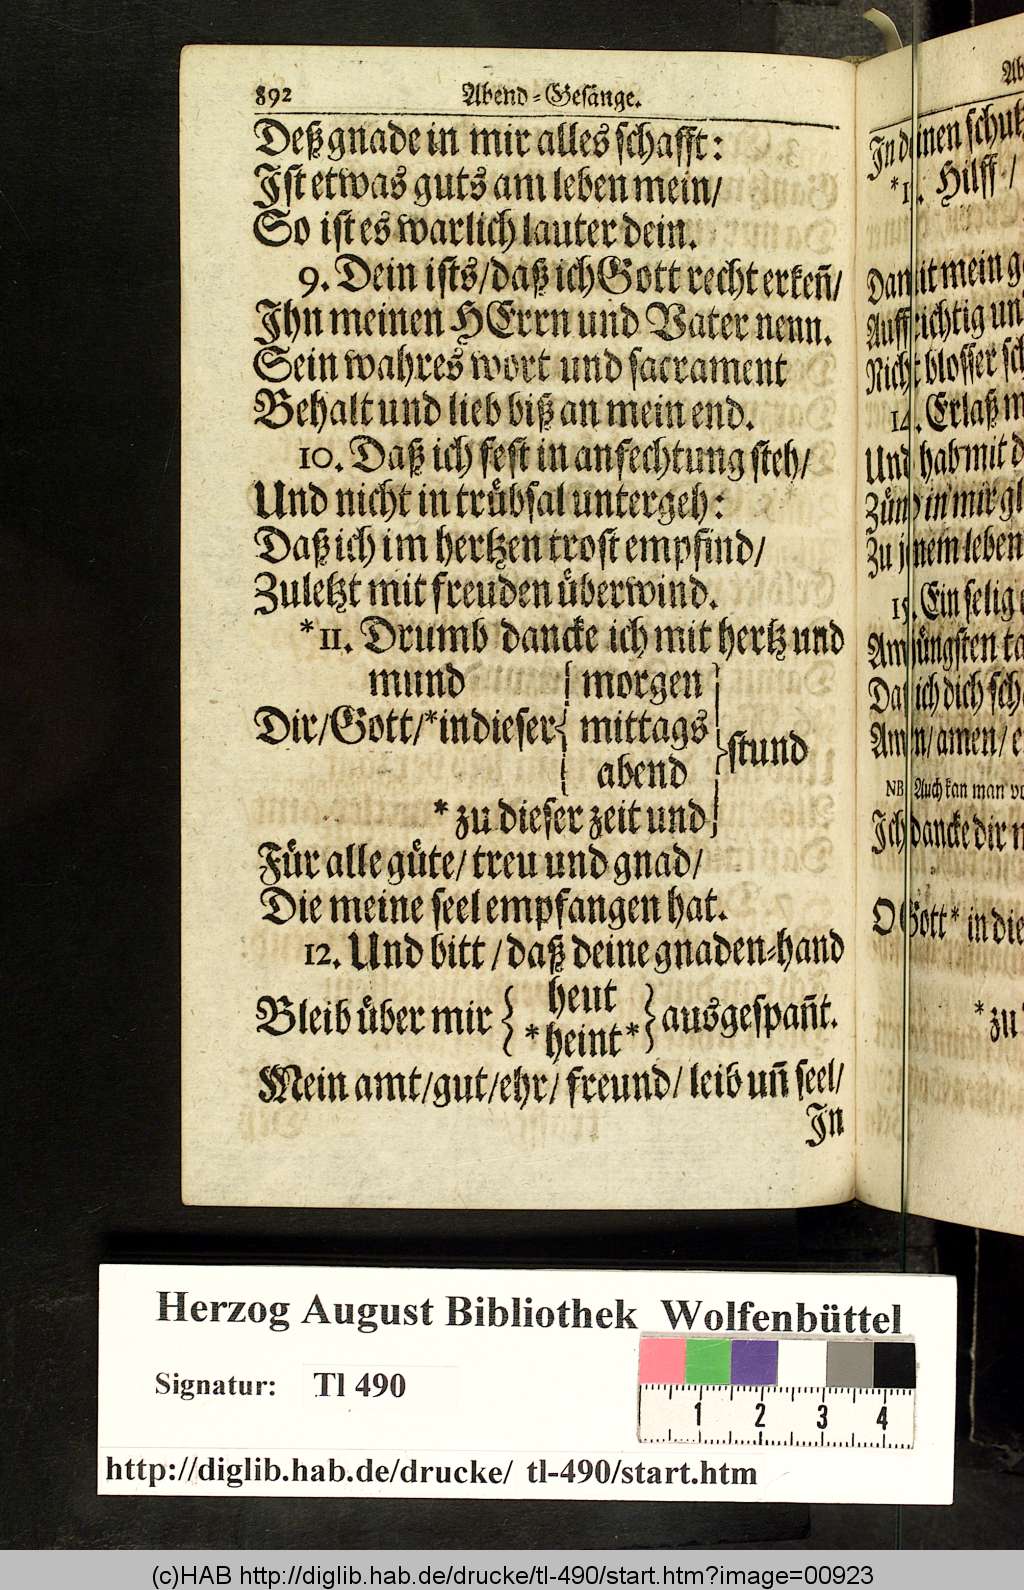 892 Abend-Gesänge.
Deß gnade in mir alles schafft:
Ist etwas guts am leben mein/
So ist es warlich lauter dein.
9. Dein ists/daß ich Gott recht erkeñ/
Ihn meinen HErrn und Vater nenn.
Sein wahres wort und sacrament
Behalt und lieb biß an mein end.
10. Daß ich fest in anfechtung steh/
Und nicht in trübsal untergeh:
Daß ich im hertzen trost empfind/
Zuletzt mit freuden überwind.
*11. Drumb dancke ich mit hertz und
mund { morgen }
Dir/Gott/*in dieser { mittags } stund
abend
* zu dieser zeit und
Für alle güte/ treu und gnad/
Die meine seel empfangen hat.
12. Und bitt/daß deine gnaden-hand
Bleib über mir { heut *heint* } ausgespañt.
Mein amt/gut/ehr/ freund/ leib uñ seel/
In
Ab
In deinen schutz
Hilff /
Damit mein
Auffrichtig
Nicht blosser
14. Erlaß
Und hab mit
Zünd in mir
Zu jenem leben
15. Ein selig
Am jüngsten
Daß ich dich
Amen/amen/
NB. Auch kan man
Ich dancke dir
O Gott* in
* zu
Herzog August Bibliothek Wolfenbüttel
Signatur: Tl 490
1 2 3 4
http://diglib.hab.de/drucke/ tl-490/start.htm
(c)HAB http://diglib.hab.de/drucke/tl-490/start.htm?image=00923